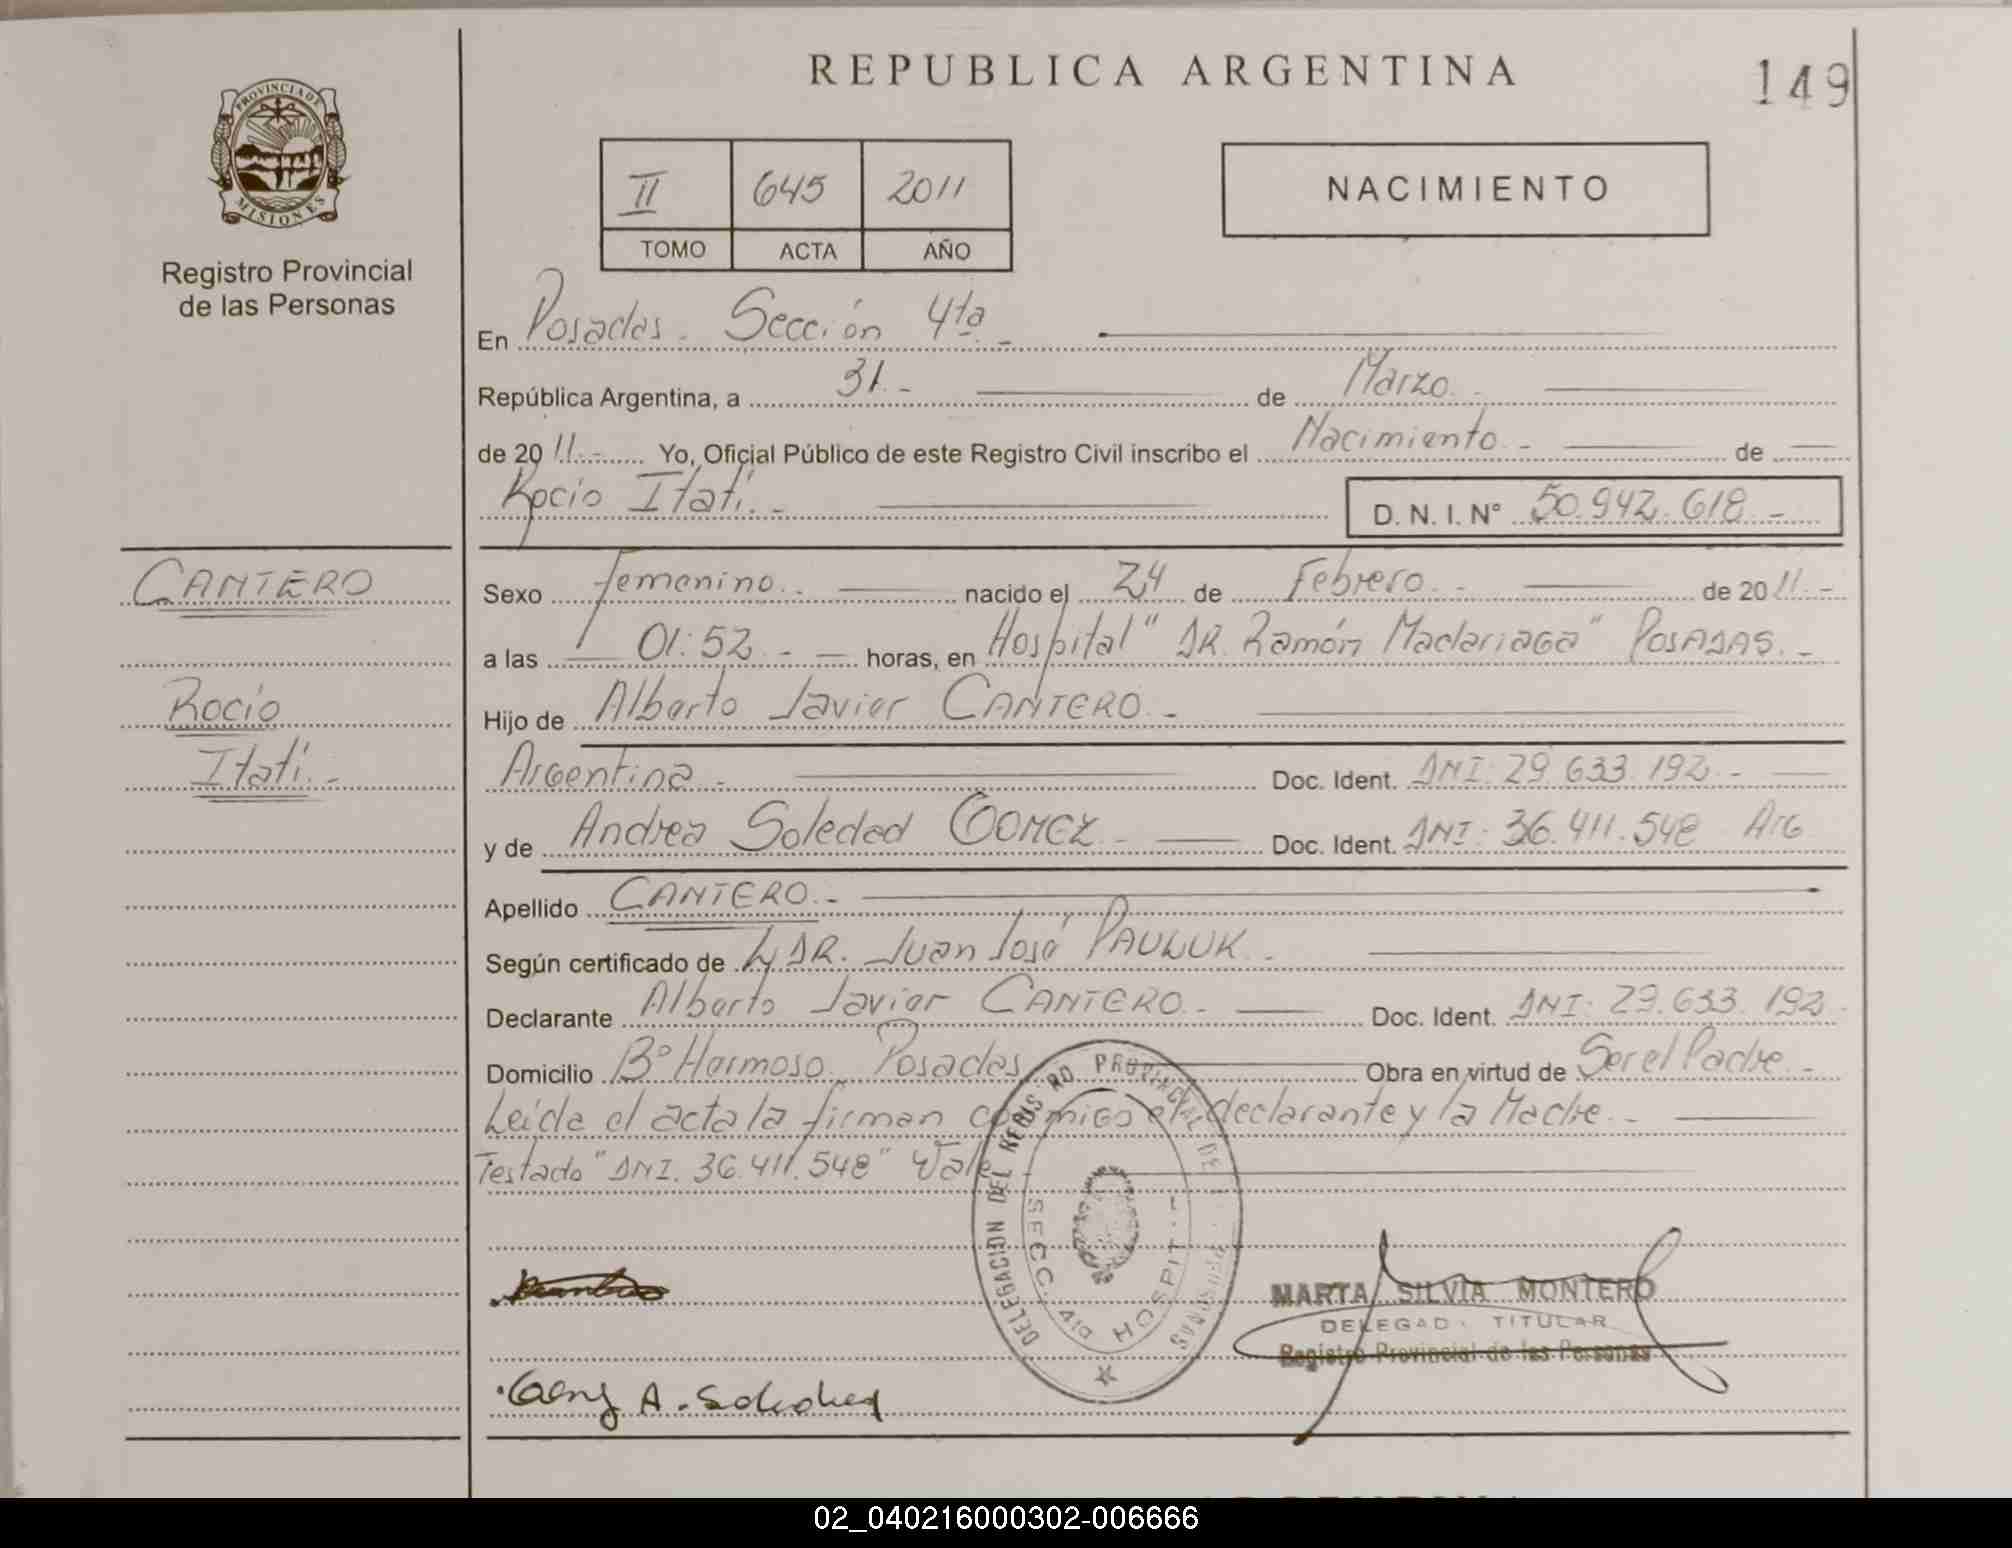 REPUBLICA ARGENTINA
149
PROVINCIA DE
MISIONES
Registro Provincial
de las Personas
II 645 2011
TOMO ACTA AÑO
NACIMIENTO
En Posadas. Sección 4ta. -
República Argentina, a 31. - de Marzo. -
de 2011. - Yo, Oficial Público de este Registro Civil inscribo el Nacimiento. - de
Rocio Itatí. - D. N. I. N° 50.942.618 -
CANTERO
Rocio
Itatí. -
Sexo femenino. - nacido el 24 de Febrero. - de 2011. -
a las 01:52. - horas, en Hospital "DR. Ramón Madariaga" POSADAS. -
Hijo de Alberto Javier CANTERO. -
Argentina - Doc. Ident. DNI: 29.633.192. -
y de Andrea Soledad GOMEZ - Doc. Ident. DNI: 36.411.548 Arg
Apellido CANTERO. -
Según certificado de DR. Juan José PAULUK. -
Declarante Alberto Javier CANTERO. - Doc. Ident. DNI: 29.633.192
Domicilio B° Hermoso. Posadas Obra en virtud de Ser el Padre. -
Leída el acta la firman conmigo el declarante y la Madre. -
Testado "DNI. 36.411.548" Vale
DELEGACION DEL REGISTRO PROVINCIAL DE LAS PERSONAS
SECC. 4ta HOSPIT.
MARTA SILVIA MONTERO
DELEGADA TITULAR
Registro Provincial de las Personas
A. Soledad
02_040216000302-006666